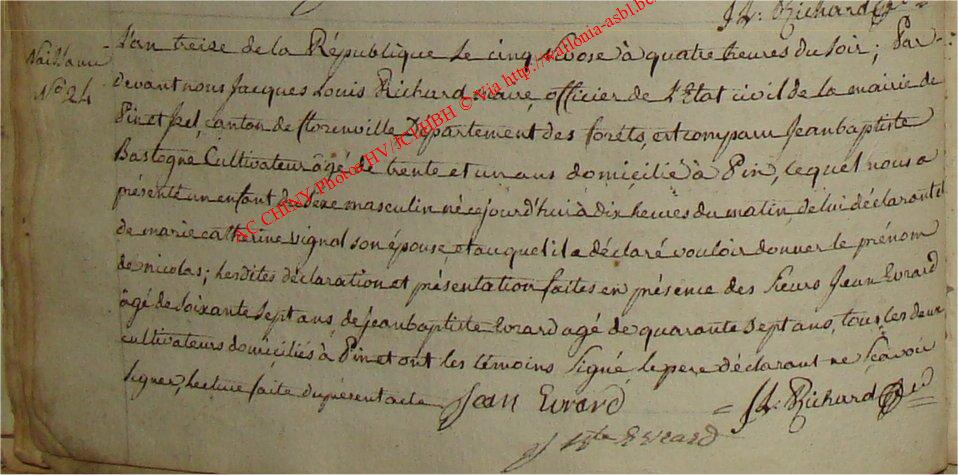 J L: Richard
Naissance
No 24
L'an treise de la République le cinq nivose à quatre heures du soir; Par-
devant nous Jacques Louis Richard maire officier de l'Etat civil de la mairie de
Pin et Izel, canton de florenville Département des forêts, est comparu Jeanbaptiste
Bastogne Cultivateur âgé de trente et un ans domicilié à Pin, lequel nous a
présenté un enfant du sexe masculin né cejourd'hui à dix heures du matin de lui déclarant et
de marie catherine signal son épouse, et auquel il a déclaré vouloir donner le prénom
de nicolas; lesdites déclaration et présentation faites en présence des sieurs Jean Evrard
âgé de soixante sept ans de jeanbaptiste Evrard agé de quarante sept ans, tous les deux
cultivateurs domiciliés à Pin et ont les témoins signé le pere déclarant ne sçavoir
signer, lecture faite du présent acte
Jean Evrard
J L: Richard
J Bte Evrard
AC CHINY Photos HV/JCLHBH © Via http://wallonia-asbl.be